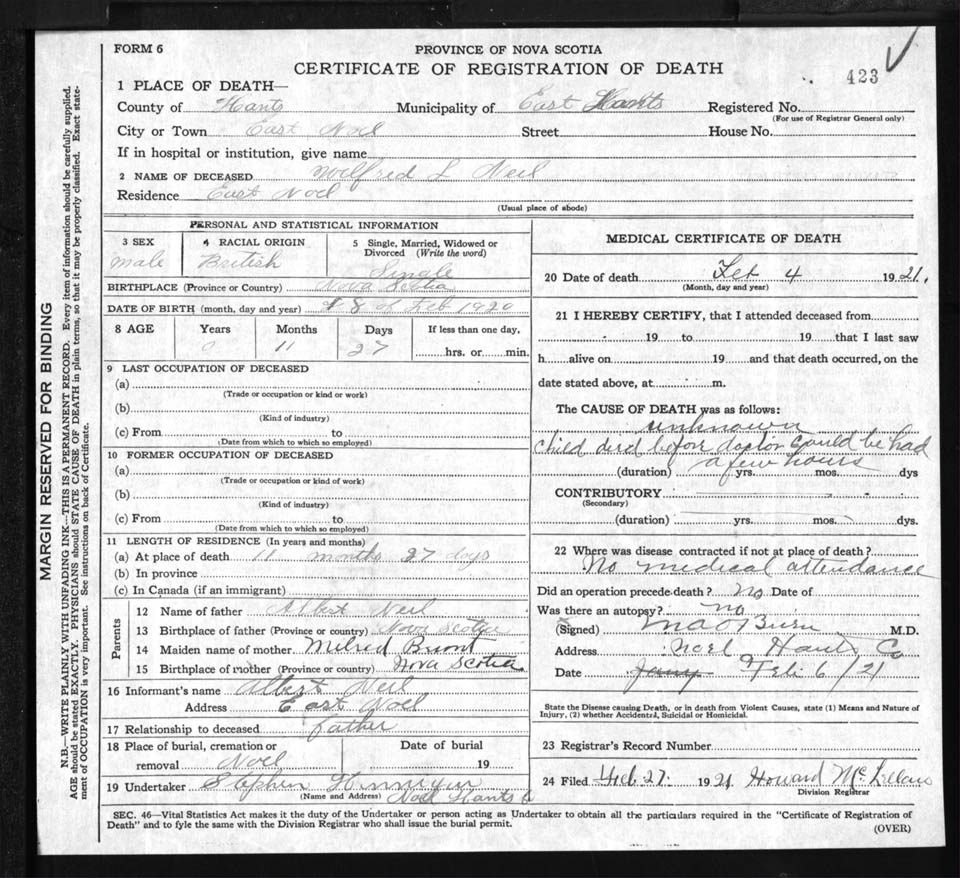 FORM 6
PROVINCE OF NOVA SCOTIA
CERTIFICATE OF REGISTRATION OF DEATH
423
1 PLACE OF DEATH—
County of Hants Municipality of East Hants Registered No.
(For use of Registrar General only)
City or Town East Noel Street House No.
If in hospital or institution, give name
2 NAME OF DECEASED Wilfred L Neil
Residence East Noel
(Usual place of abode)
PERSONAL AND STATISTICAL INFORMATION
3 SEX 4 RACIAL ORIGIN 5 Single, Married, Widowed or
Divorced (Write the word)
Male British Single
BIRTHPLACE (Province or Country) Nova Scotia
DATE OF BIRTH (month, day and year) 8 of Feb 1920
8 AGE Years Months Days If less than one day,
0 11 27 hrs. or min.
9 LAST OCCUPATION OF DECEASED
(a)
(Trade or occupation or kind or work)
(b)
(Kind of industry)
(c) From to
(Date from which to which so employed)
10 FORMER OCCUPATION OF DECEASED
(a)
(Trade or occupation or kind of work)
(b)
(Kind of industry)
(c) From to
(Date from which to which so employed)
11 LENGTH OF RESIDENCE (In years and months)
(a) At place of death 11 months 27 days
(b) In province
(c) In Canada (if an immigrant)
Parents
12 Name of father Albert Neil
13 Birthplace of father (Province or country) Nova Scotia
14 Maiden name of mother Milred
15 Birthplace of mother (Province or country) Nova Scotia
16 Informant's name Albert Neil
Address East Noel
17 Relationship to deceased father
18 Place of burial, cremation or Date of burial
removal Noel 19
19 Undertaker Stephen
(Name and Address) Noel Hants
MEDICAL CERTIFICATE OF DEATH
20 Date of death Feb 4 1921.
(Month, day and year)
21 I HEREBY CERTIFY, that I attended deceased from
19 to 19 that I last saw
h alive on 19 and that death occurred, on the
date stated above, at m.
The CAUSE OF DEATH was as follows:
unknown
child died before doctor could be had
a few hours
(duration) yrs. mos. dys
CONTRIBUTORY
(Secondary)
(duration) yrs. mos. dys.
22 Where was disease contracted if not at place of death?
No medical attendance
Did an operation precede death? No Date of
Was there an autopsy? no
(Signed) M.D.
Address Noel Hants Co
Date Jany Feb 6/21
State the Disease causing Death, or in death from Violent Causes, state (1) Means and Nature of
Injury, (2) whether Accidental, Suicidal or Homicidal.
23 Registrar's Record Number
24 Filed Feb 27 1921 Howard McLellan
Division Registrar
SEC. 46—Vital Statistics Act makes it the duty of the Undertaker or person acting as Undertaker to obtain all the particulars required in the "Certificate of Registration of
Death" and to fyle the same with the Division Registrar who shall issue the burial permit.
(OVER)
MARGIN RESERVED FOR BINDING
N.B.—WRITE PLAINLY WITH UNFADING INK—THIS IS A PERMANENT RECORD. Every item of information should be carefully supplied.
AGE should be stated EXACTLY. PHYSICIANS should STATE CAUSE OF DEATH in plain terms, so that it may be properly classified. Exact state-
ment of OCCUPATION is very important. See instructions on back of Certificate.